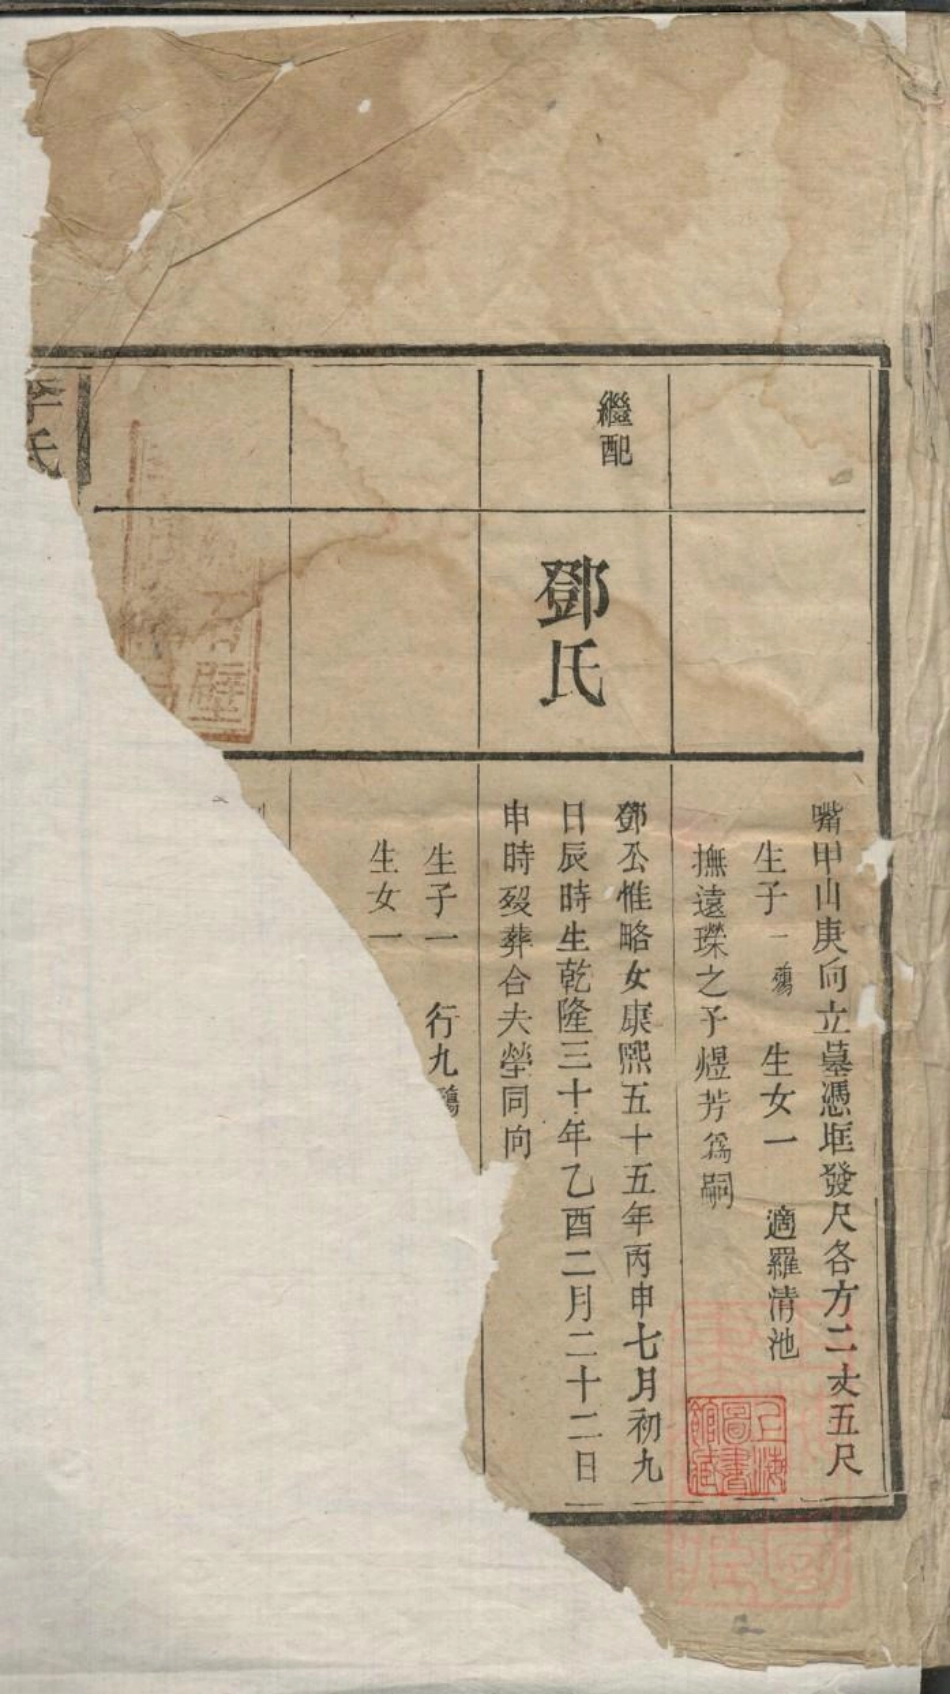 嘴甲山庚向立墓憑眶發尺各方二丈五尺
生子一鵷 生女一 適羅清池
撫遠瓅之子煜芳爲嗣
繼配
鄧氏
鄧公惟略女康熙五十五年丙申七月初九
日辰時生乾隆三十年乙酉二月二十二日
申時歿葬合夫塋同向
生子一 行九
生女一
氏
上海
圖書
館藏